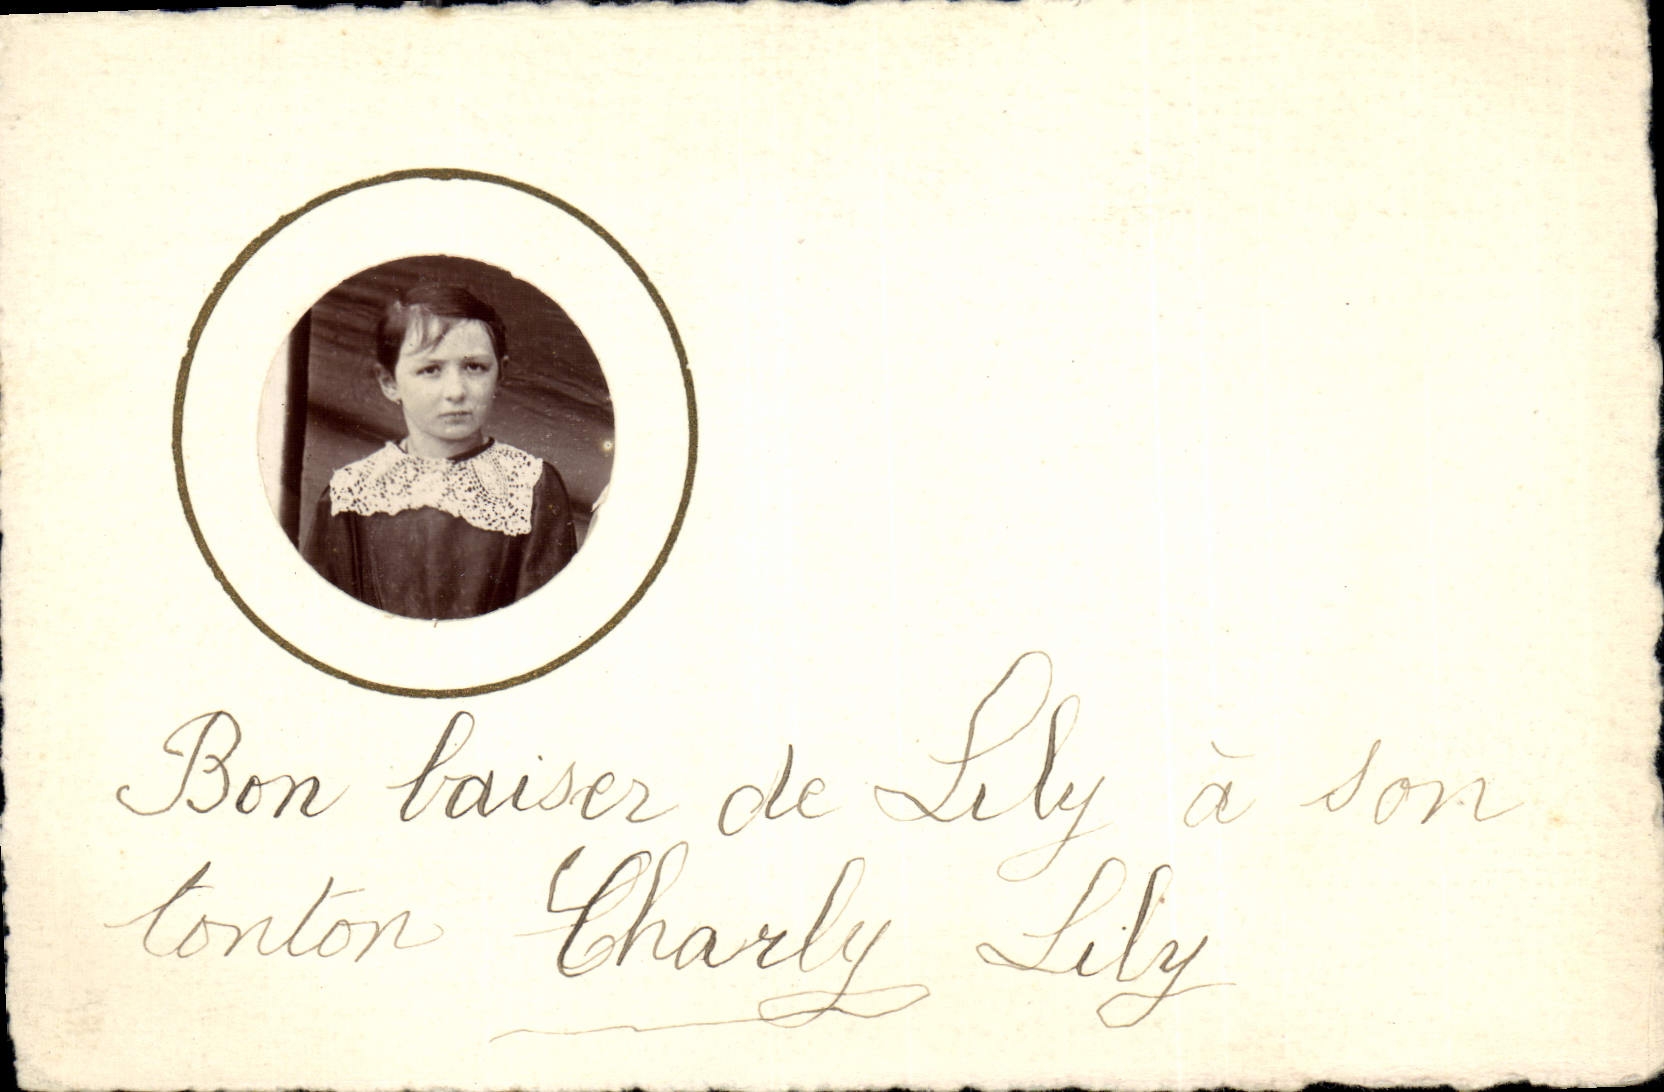 Bon baiser de Lily à son
tonton Charly Lily